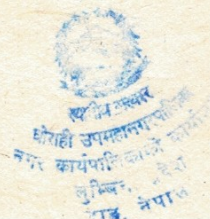 स्थानीय सरकार
घोराही उपमहानगरपालिका
नगर कार्यपालिकाको कार्यालय
नेपाल